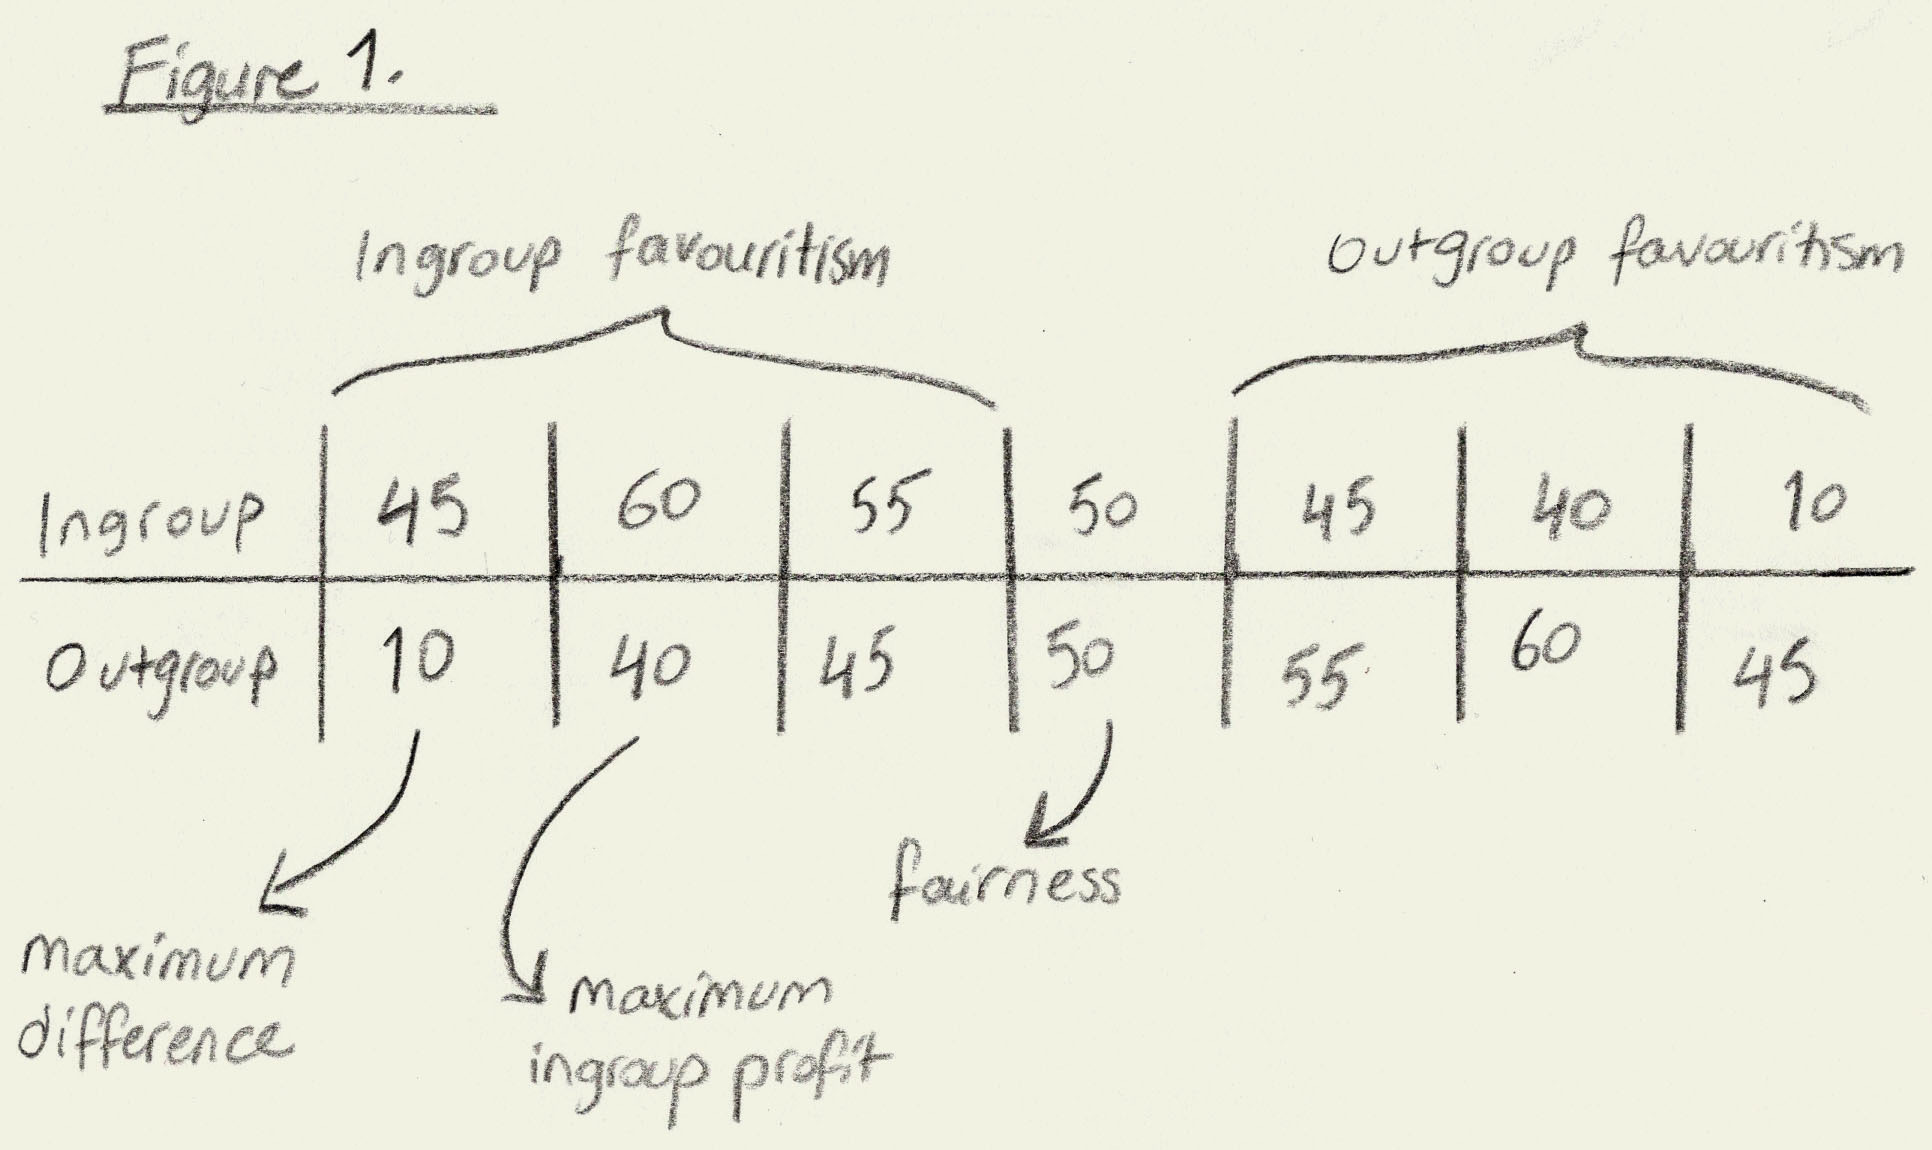 Figure 1.
Ingroup favouritism
Outgroup favouritism
Ingroup 45 60 55 50 45 40 10
Outgroup 10 40 45 50 55 60 45
fairness
maximum
difference
maximum
ingroup profit